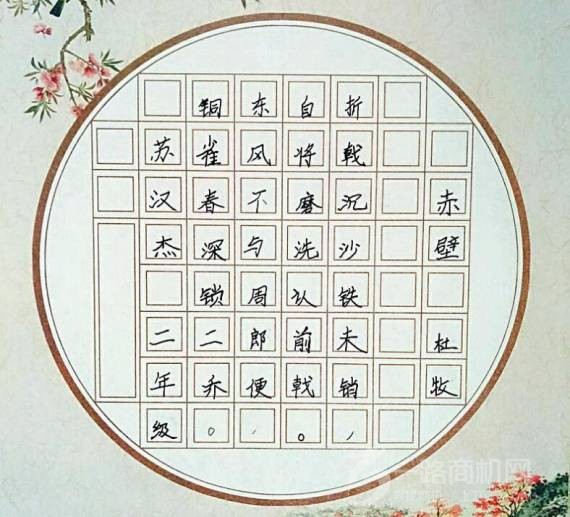 赤壁 杜牧
折戟沉沙铁未销，
自将磨洗认前戟。
东风不与周郎便，
铜雀春深锁二乔。
苏汉杰 二年级
一路商机网